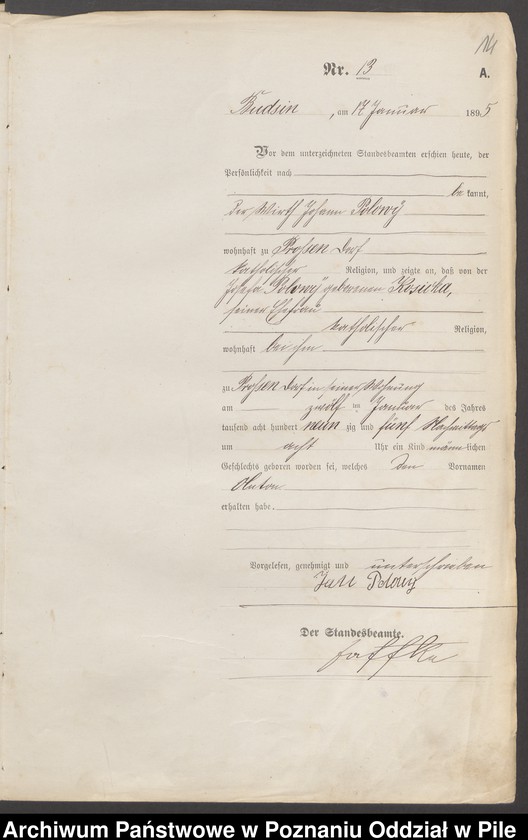 14
Nr. 13
A.
Budsin, am 17 Januar 1895
Vor dem unterzeichneten Standesbeamten erschien heute, der
Persönlichkeit nach
be kannt,
der Wirth Johann Polowÿ
wohnhaft zu Proßen Dorf
katholischer Religion, und zeigte an, daß von der
Josefa Polowÿ gebornen Kosicka,
seiner Ehefrau
katholischer Religion,
wohnhaft bei ihm
zu Proßen Dorf in seiner Wohnung
am zwölf ten Januar des Jahres
tausend acht hundert neun zig und fünf Nachmittags
um acht Uhr ein Kind männ-lichen
Geschlechts geboren worden sei, welches den Vornamen
Anton
erhalten habe.
Vorgelesen, genehmigt und unterschrieben
Jan Polowy
Der Standesbeamte.
Archiwum Państwowe w Poznaniu Oddział w Pile